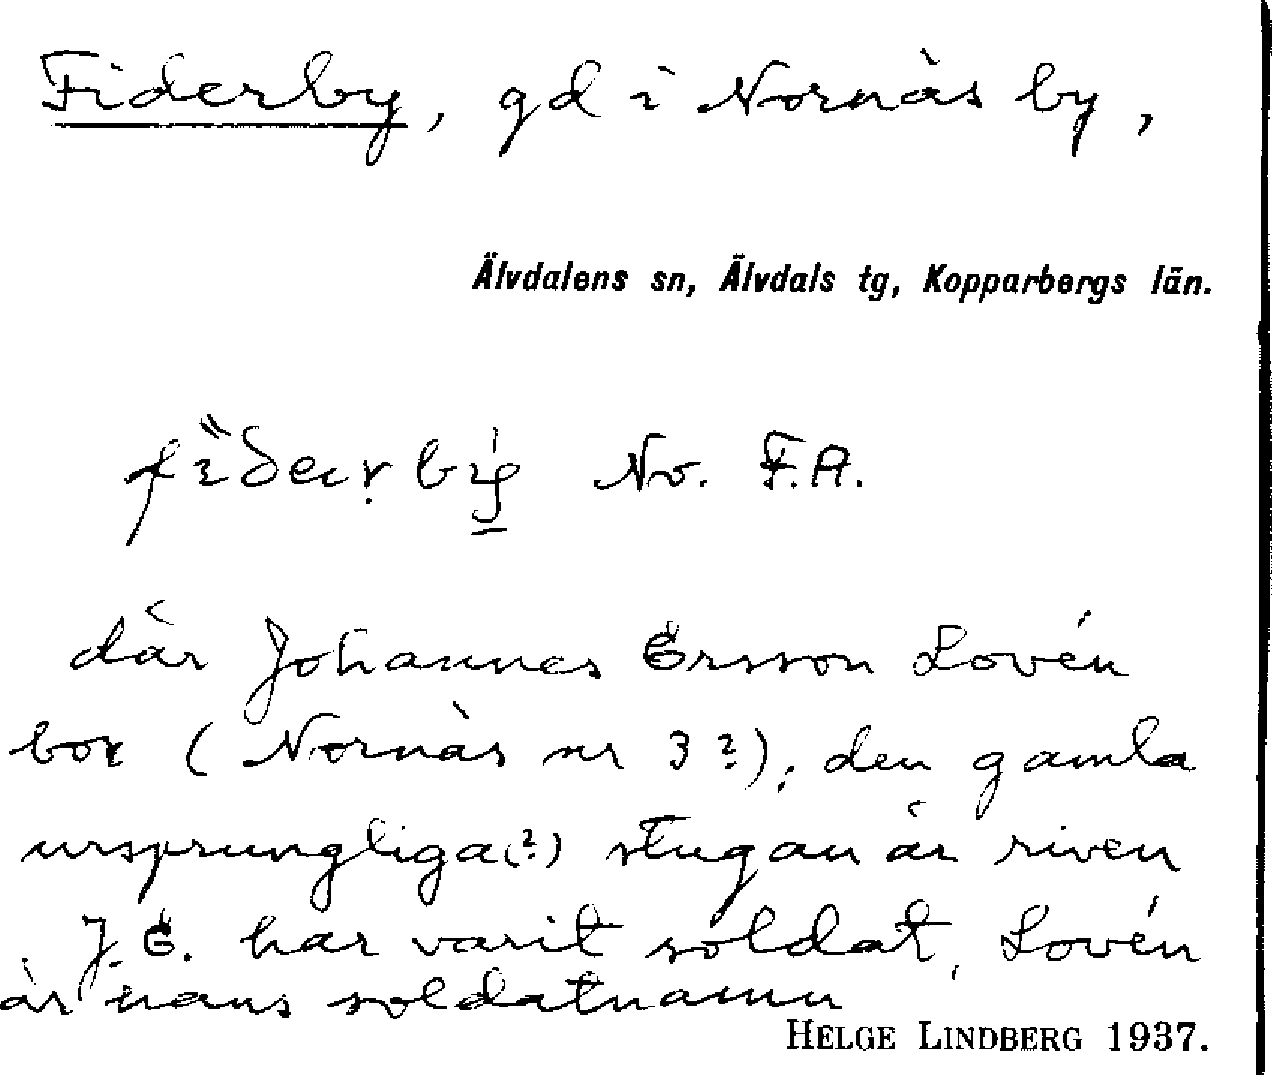 Fiderby, gd i Nornäs by,
Älvdalens sn, Älvdals tg, Kopparbergs län.
No. F.A.
där Johannes Ersson Lovén
bor (Nornäs nr 3?); den gamla
ursprungliga(?) stugan är riven
. J. E. har varit soldat, Lovén
är hans soldatnamn
HELGE LINDBERG 1937.